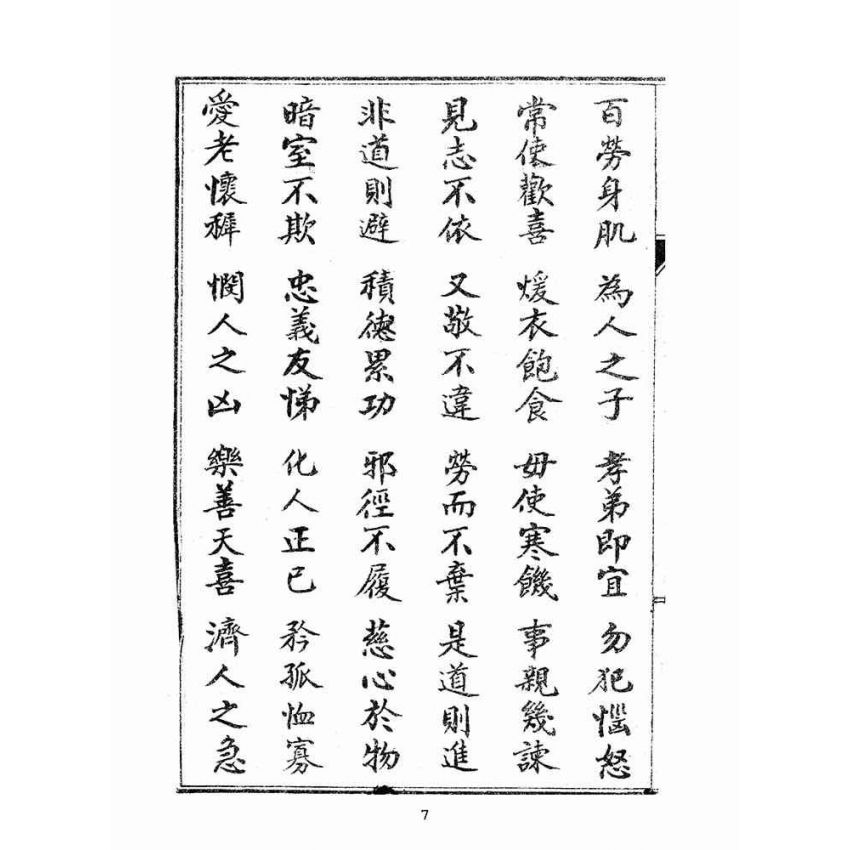 百勞身肌 為人之子 孝弟即宜 勿犯惱怒
常使歡喜 煖衣飽食 毋使寒饑 事親幾諫
見志不依 又敬不違 勞而不棄 是道則進
非道則避 積德累功 邪徑不履 慈心於物
暗室不欺 忠義友悌 化人正己 矜孤恤寡
愛老懷穉 憫人之凶 樂善天喜 濟人之急
7